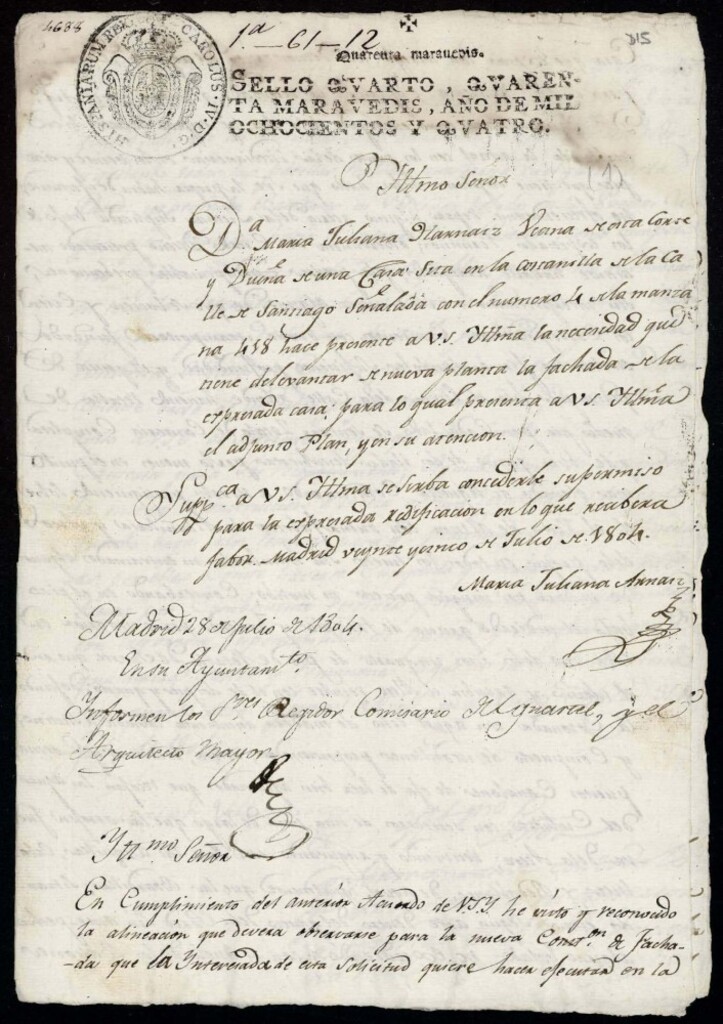 4688
1.ª - 61 - 12
815
HISPANIARUM REX CAROLUS·IV·D·G·
Quarenta maravedis.
SELLO QVARTO, QVAREN-
TA MARAVEDIS, AÑO DE MIL
OCHOCIENTOS Y QVATRO.
(1)
Yltmo Señor
D.ª Maria Juliana Ybarnaz Vecina de esta Corte
y Dueña de una Casa Sita en la costanilla de la Ca
lle de Santiago Señalada con el numero 4 de la manza
na 418 hace presente a V.S. Yltm̃a la necesidad que
tiene de levantar de nueva planta la fachada de la
expresada casa; para lo qual presenta a V.S. Yltm̃a
el adjunto Plan, y en su atencion.
Supp.ca a V.S. Yltma se sirba concederle su permiso
para la expresada redificacion en lo que recibera
fabor. Madrid veynte y cinco de Julio de 1804.
Maria Juliana Arnaiz
Madrid 28 de Julio de 1804.
En su Ayuntam.to
Informen los S.res Regidor Comisario del quartel, y el
Arquitecto mayor
Yltmo Señor
En Cumplimiento del anterior Acuerdo de V.S.Y. he visto y reconocido
la alineacion que devera observarse para la nueva Const.on de Facha-
-da que la Ynteresada de esta solicitud quiere hacer ejecutar en la